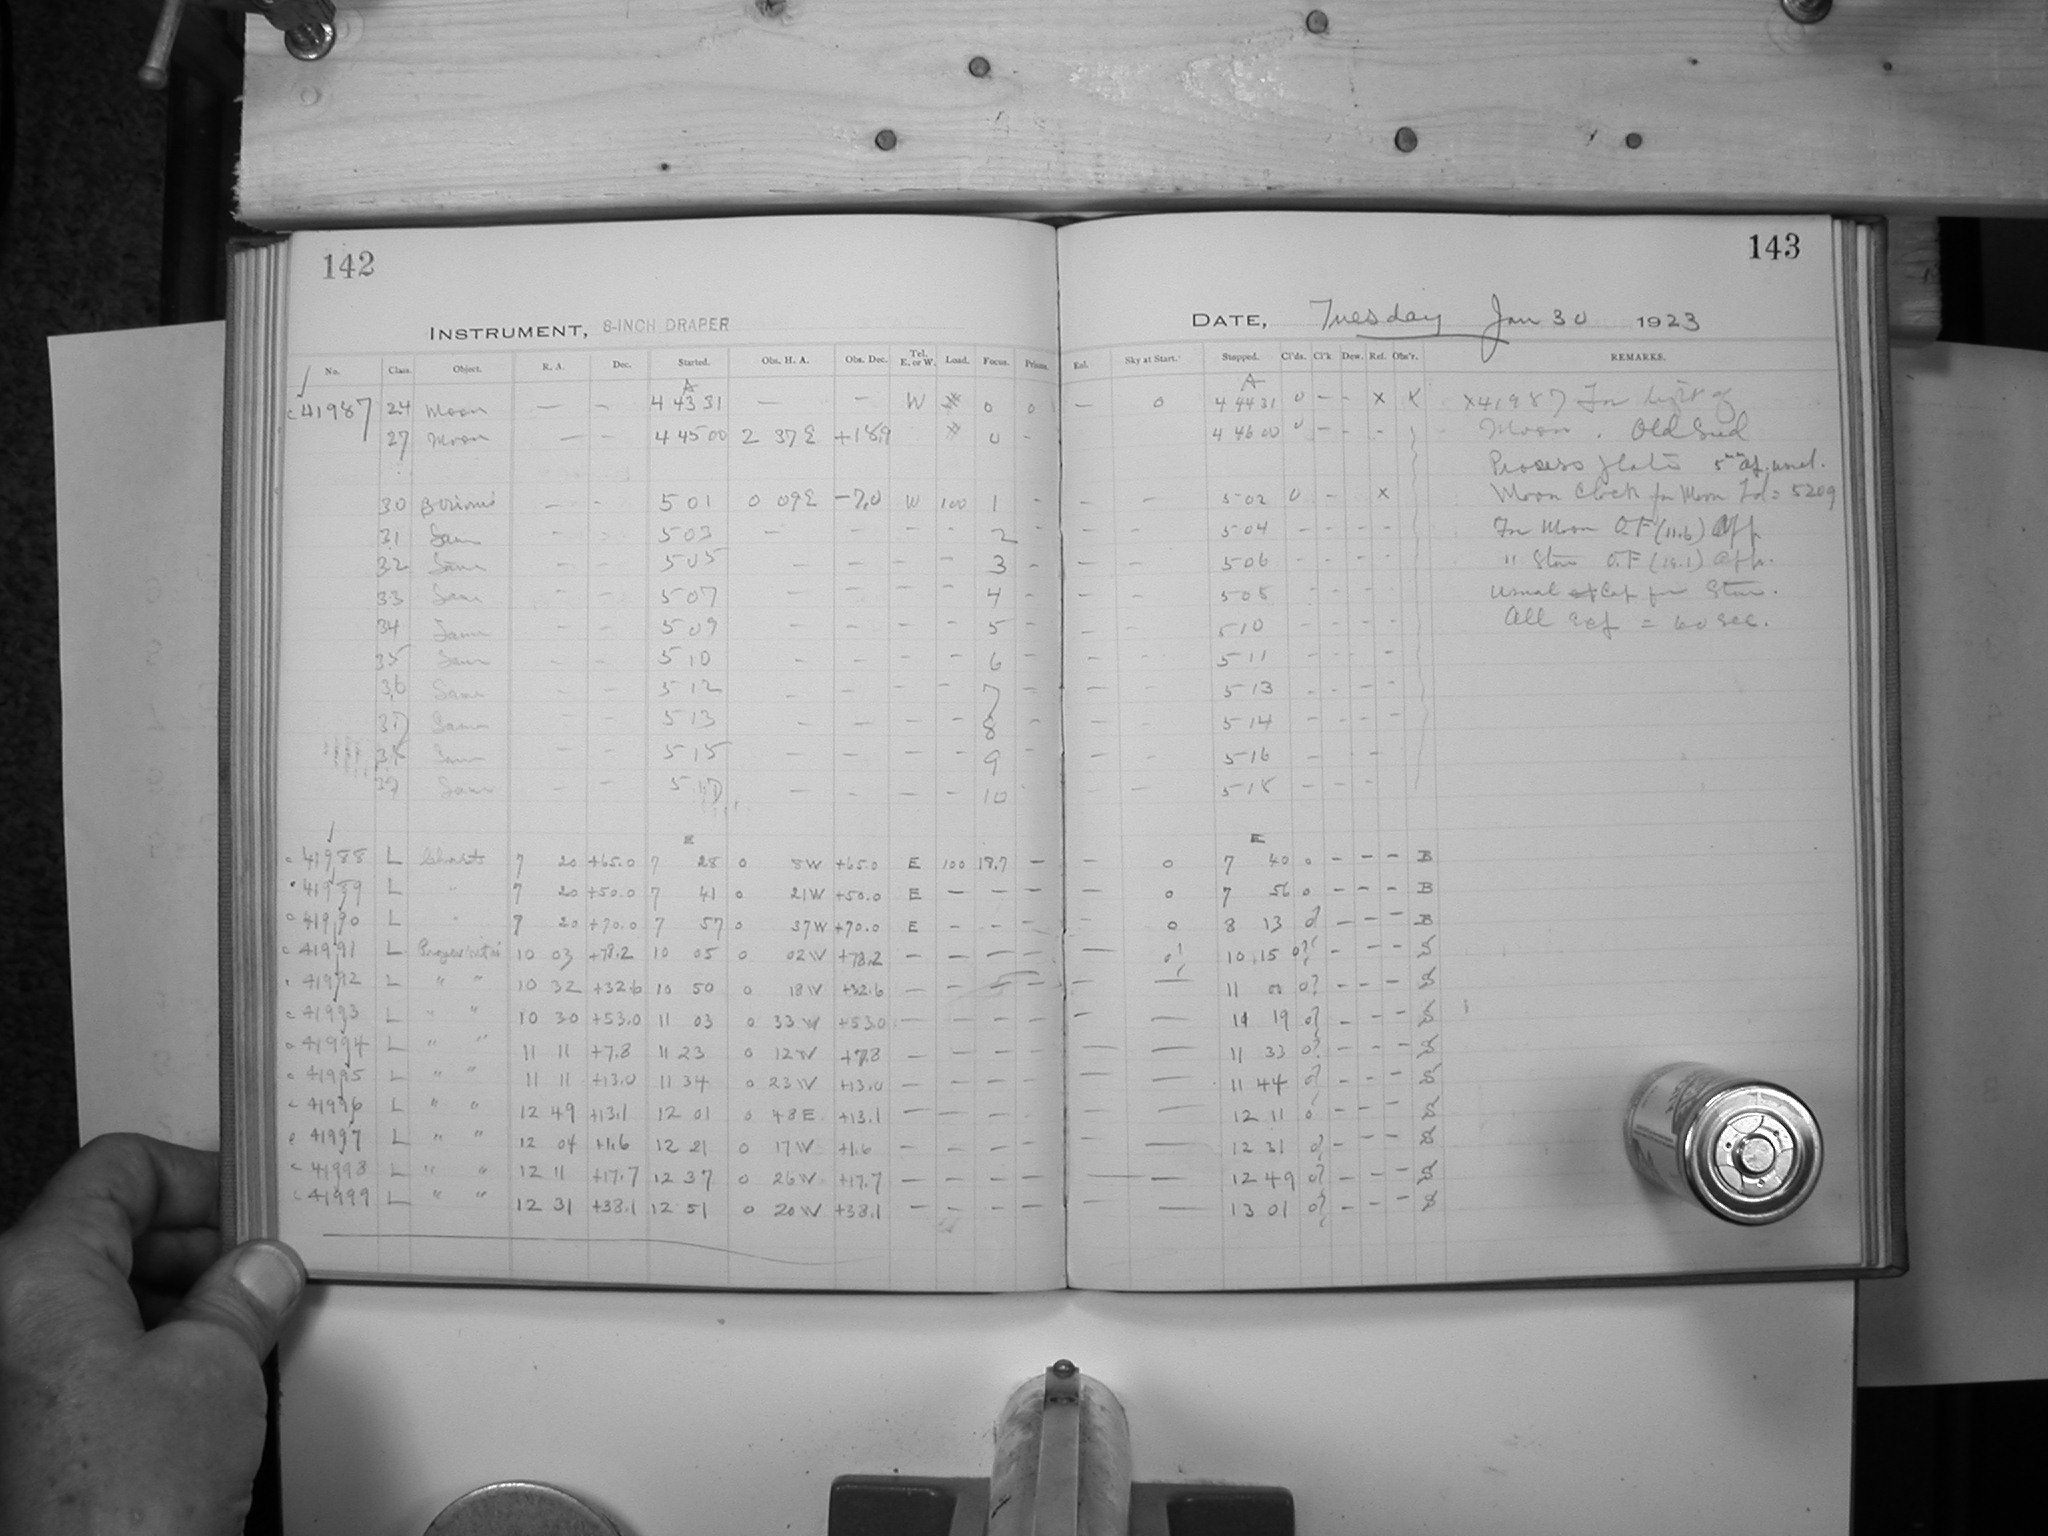 142
143
INSTRUMENT, 8-INCH DRAPER
DATE, Tuesday Jan 30 1923
No. Class. Object. R. A. Dec. Started. Obs. H. A. Obs. Dec. Tel. E. or W. Load. Focus. Prisms. Exl. Sky at Start. Stopped. Cl'ds. Cl'k Dew. Ref. Obs'r. REMARKS.
A A
c 41987 24 Moon — – 4 43 31 — – W 0 0 — 0 4 44 31 0 – – x X x41987 For light of
27 Moon — – 4 45 00 2 37 E +18.9 0 – 4 46 00 0 – – – Moon. Old Seed
Process plate usual.
30 – – 5 01 0 09 E –7.0 W 100 1 – – – 5 02 0 – x Moon Clock for Moon = 5209
31 Same – – 5 03 – – – – 2 – – – 5 04 – – – – For Moon O.F (11.6) App.
32 Same – – 5 05 – – – – 3 – – – 5 06 – – – – " Star O.F App.
33 Same – – 5 07 – – – – 4 – – – 5 08 – – – – usual Cap for Star.
34 Same – – 5 09 – – – – 5 – – – 5 10 – – – – All exp = 60 sec.
35 Same – – 5 10 – – – – 6 – – – 5 11 – – – –
36 Same – – 5 12 – – – – 7 – – – 5 13 – – – –
37 Same – – 5 13 – – – – 8 – – – 5 14 – – – –
38 Same – – 5 15 – – – – 9 – – – 5 16 – – – –
39 Same – – 5 17 – – – – 10 – – – 5 18 – – – –
E E
c 41988 L Charts 7 20 +65.0 7 28 0 8W +65.0 E 100 18.7 — — 0 7 40 0 – – – B
c 41989 L " 7 20 +50.0 7 41 0 21W +50.0 E — – – — 0 7 56 0 – – – B
c 41990 L " 7 20 +70.0 7 57 0 37W +70.0 E – – – – 0 8 13 0? – – – B
c 41991 L 10 03 +78.2 10 05 0 02W +78.2 – – – – — 0? 10 15 0? – – – S
c 41992 L " " 10 32 +32.6 10 50 0 18W +32.6 – – – – — — 11 00 0? – – – S
c 41993 L " " 10 30 +53.0 11 03 0 33W +53.0 – – – – – — 11 19 0? – – – S
c 41994 L " " 11 11 +7.8 11 23 0 12W +7.8 – – – – — — 11 33 0? – – – S
c 41995 L " " 11 11 +13.0 11 34 0 23W +13.0 – – – – — — 11 44 0? – – – S
c 41996 L " " 12 49 +13.1 12 01 0 48E +13.1 – – – – — — 12 11 0? – – – S
c 41997 L " " 12 04 +1.6 12 21 0 17W +1.6 – – – – — — 12 31 0? – – – S
c 41998 L " " 12 11 +17.7 12 37 0 26W +17.7 – – – – — — 12 49 0? – – – S
c 41999 L " " 12 31 +38.1 12 51 0 20W +38.1 – – – – — — 13 01 0? – – – S